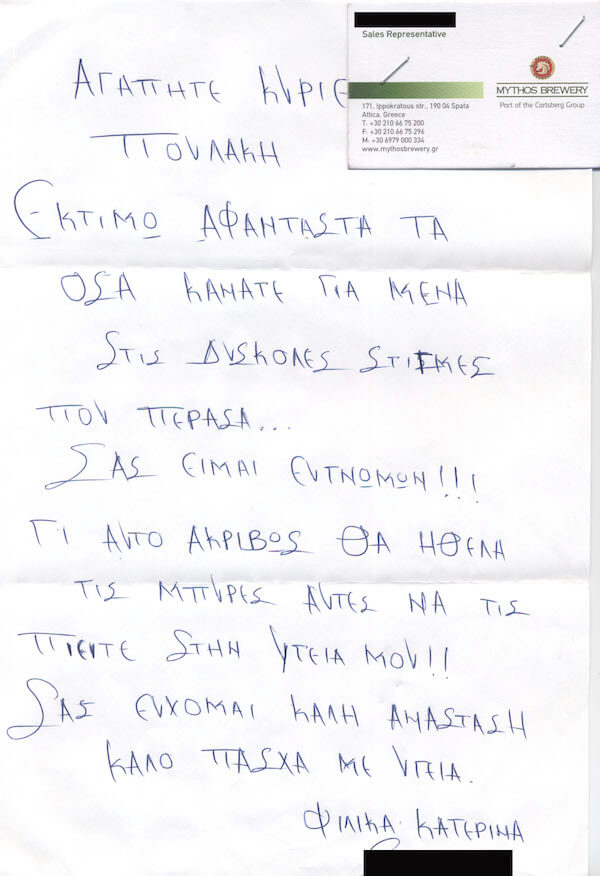 Sales Representative
MYTHOS BREWERY
Part of the Carlsberg Group
171, Ippokratous str., 190 04 Spata
Attica, Greece
T: +30 210 66 75 200
F: +30 210 66 75 296
M: +30 6979 000 334
www.mythosbrewery.gr
ΑΓΑΠΗΤΕ ΚΥΡΙΕ
ΠΟΥΛΑΚΗ
ΕΚΤΙΜΩ ΑΦΑΝΤΑΣΤΑ ΤΑ
ΟΣΑ ΚΑΝΑΤΕ ΓΙΑ ΜΕΝΑ
ΣΤΙΣ ΔΥΣΚΟΛΕΣ ΣΤΙΓΜΕΣ
ΠΟΥ ΠΕΡΑΣΑ...
ΣΑΣ ΕΙΜΑΙ ΕΥΓΝΩΜΩΝ!!!
ΓΙ ΑΥΤΟ ΑΚΡΙΒΩΣ ΘΑ ΗΘΕΛΑ
ΤΙΣ ΜΠΥΡΕΣ ΑΥΤΕΣ ΝΑ ΤΙΣ
ΠΙΕΙΤΕ ΣΤΗΝ ΥΓΕΙΑ ΜΟΥ!!
ΣΑΣ ΕΥΧΟΜΑΙ ΚΑΛΗ ΑΝΑΣΤΑΣΗ
ΚΑΛΟ ΠΑΣΧΑ ΜΕ ΥΓΕΙΑ.
ΦΙΛΙΚΑ ΚΑΤΕΡΙΝΑ